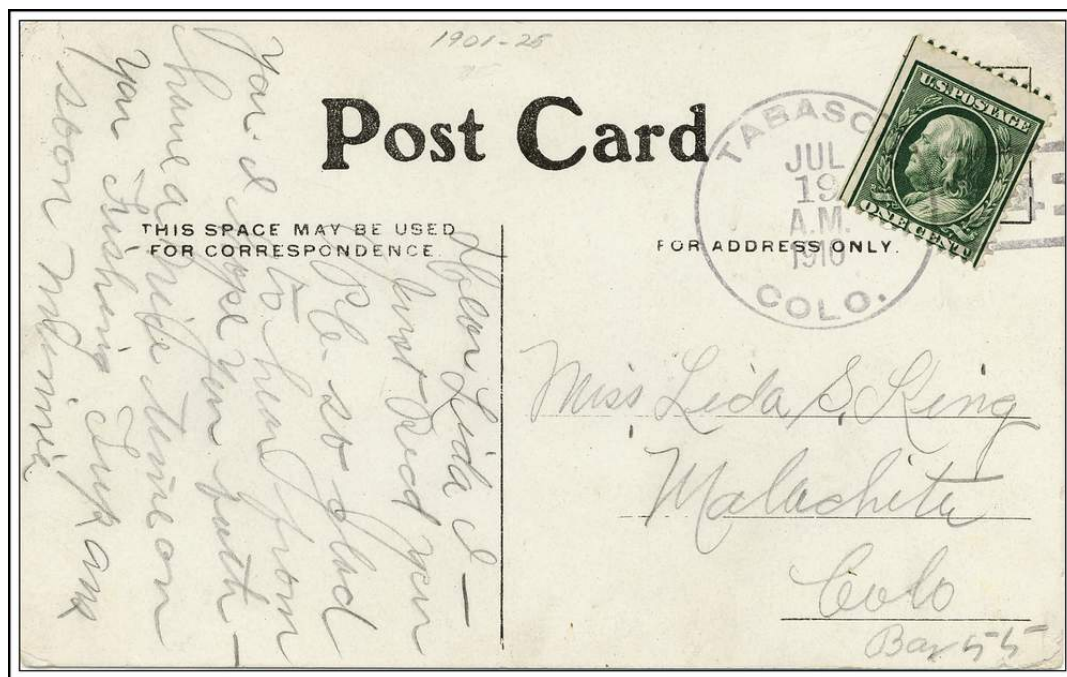 1901-25
Post Card
THIS SPACE MAY BE USED
FOR CORRESPONDENCE.
FOR ADDRESS ONLY.
TABASCO
JUL
19
A.M.
1910
COLO.
U.S. POSTAGE
ONE CENT
Dear Lida I -
just Recd your
so glad
to hear from
you. I hope you both -
have a nice time on
your Fishing Trip ans
soon Minnie
Miss Lida S. King
Malachite
Colo
55